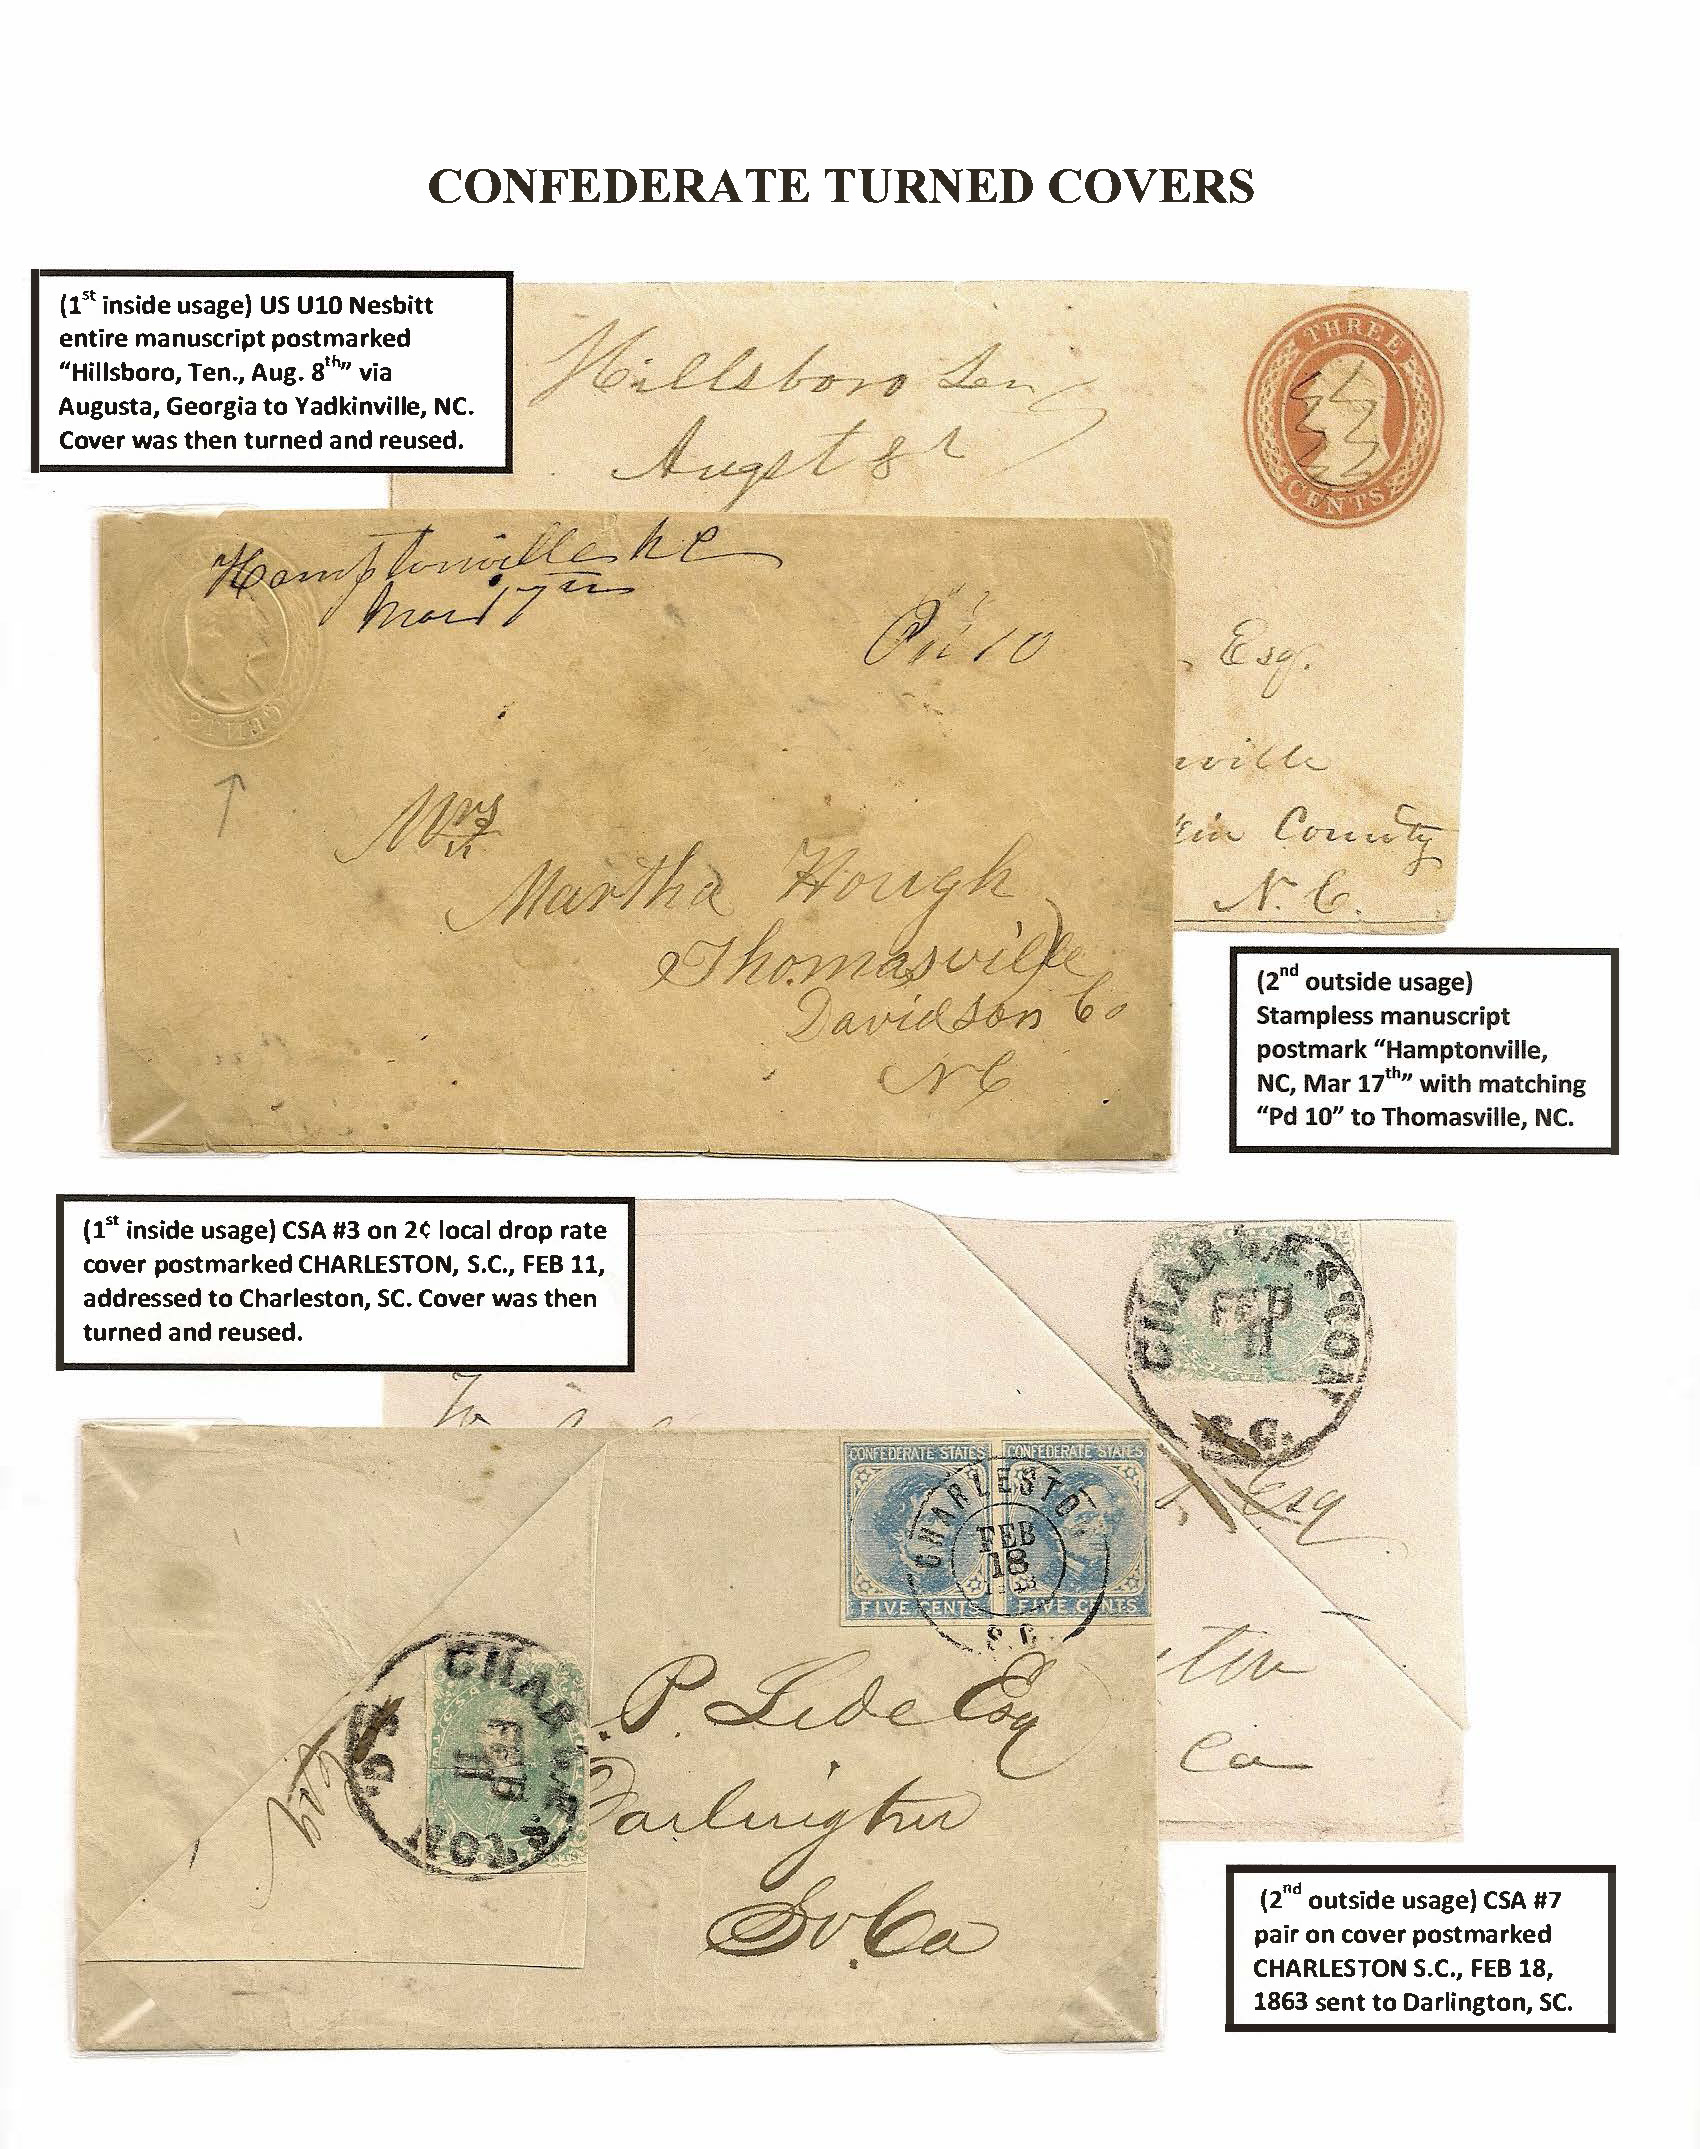 CONFEDERATE TURNED COVERS
(1st inside usage) US U10 Nesbitt
entire manuscript postmarked
“Hillsboro, Ten., Aug. 8th” via
Augusta, Georgia to Yadkinville, NC.
Cover was then turned and reused.
Hillsboro Ten
Augst 8
THREE
CENTS
Esq.
ville
kin County
N. C.
Hamptonville N C
Mar 17th
Pd 10
CENTS
Mrs
Martha Hough
Thomasville
Davidson Co
N C
(2nd outside usage)
Stampless manuscript
postmark “Hamptonville,
NC, Mar 17th” with matching
“Pd 10” to Thomasville, NC.
(1st inside usage) CSA #3 on 2¢ local drop rate
cover postmarked CHARLESTON, S.C., FEB 11,
addressed to Charleston, SC. Cover was then
turned and reused.
CHARLESTON
FEB
11
S.C.
Esq
ton
Ca
CONFEDERATE STATES
CONFEDERATE STATES
CHARLESTON
FEB
18
S.C.
FIVE CENTS
FIVE CENTS
CHARLESTON
FEB
11
S.C.
Esq
P. Lide Esq
Darlington
So Ca
(2nd outside usage) CSA #7
pair on cover postmarked
CHARLESTON S.C., FEB 18,
1863 sent to Darlington, SC.